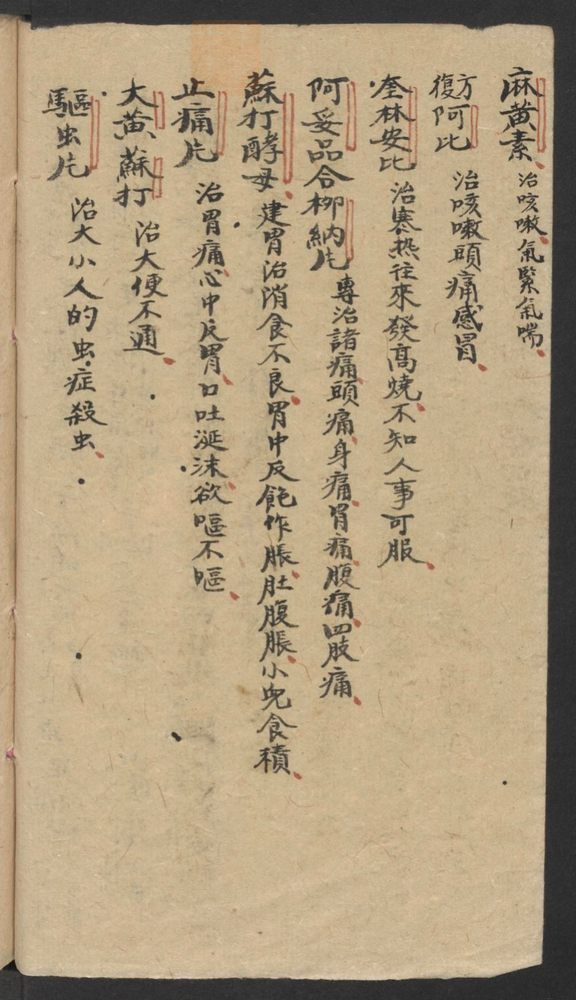 麻黃素 治咳嗽、氣緊氣喘、
復方阿比 治咳嗽頭痛感冒、
奎林安比 治寒热往來發高燒、不知人事可服、
阿妥品合柳納片 專治諸痛頭痛、身痛、胃痛、腹痛、四肢痛、
蘇打酵母、建胃治消食不良、胃中反飽作脹、肚腹脹、小兒食積、
止痛片 治胃痛、心中反胃、口吐涎沫、欲嘔不嘔、
大黃蘇打 治大便不通、
驅虫片 治大小人的虫症殺虫、